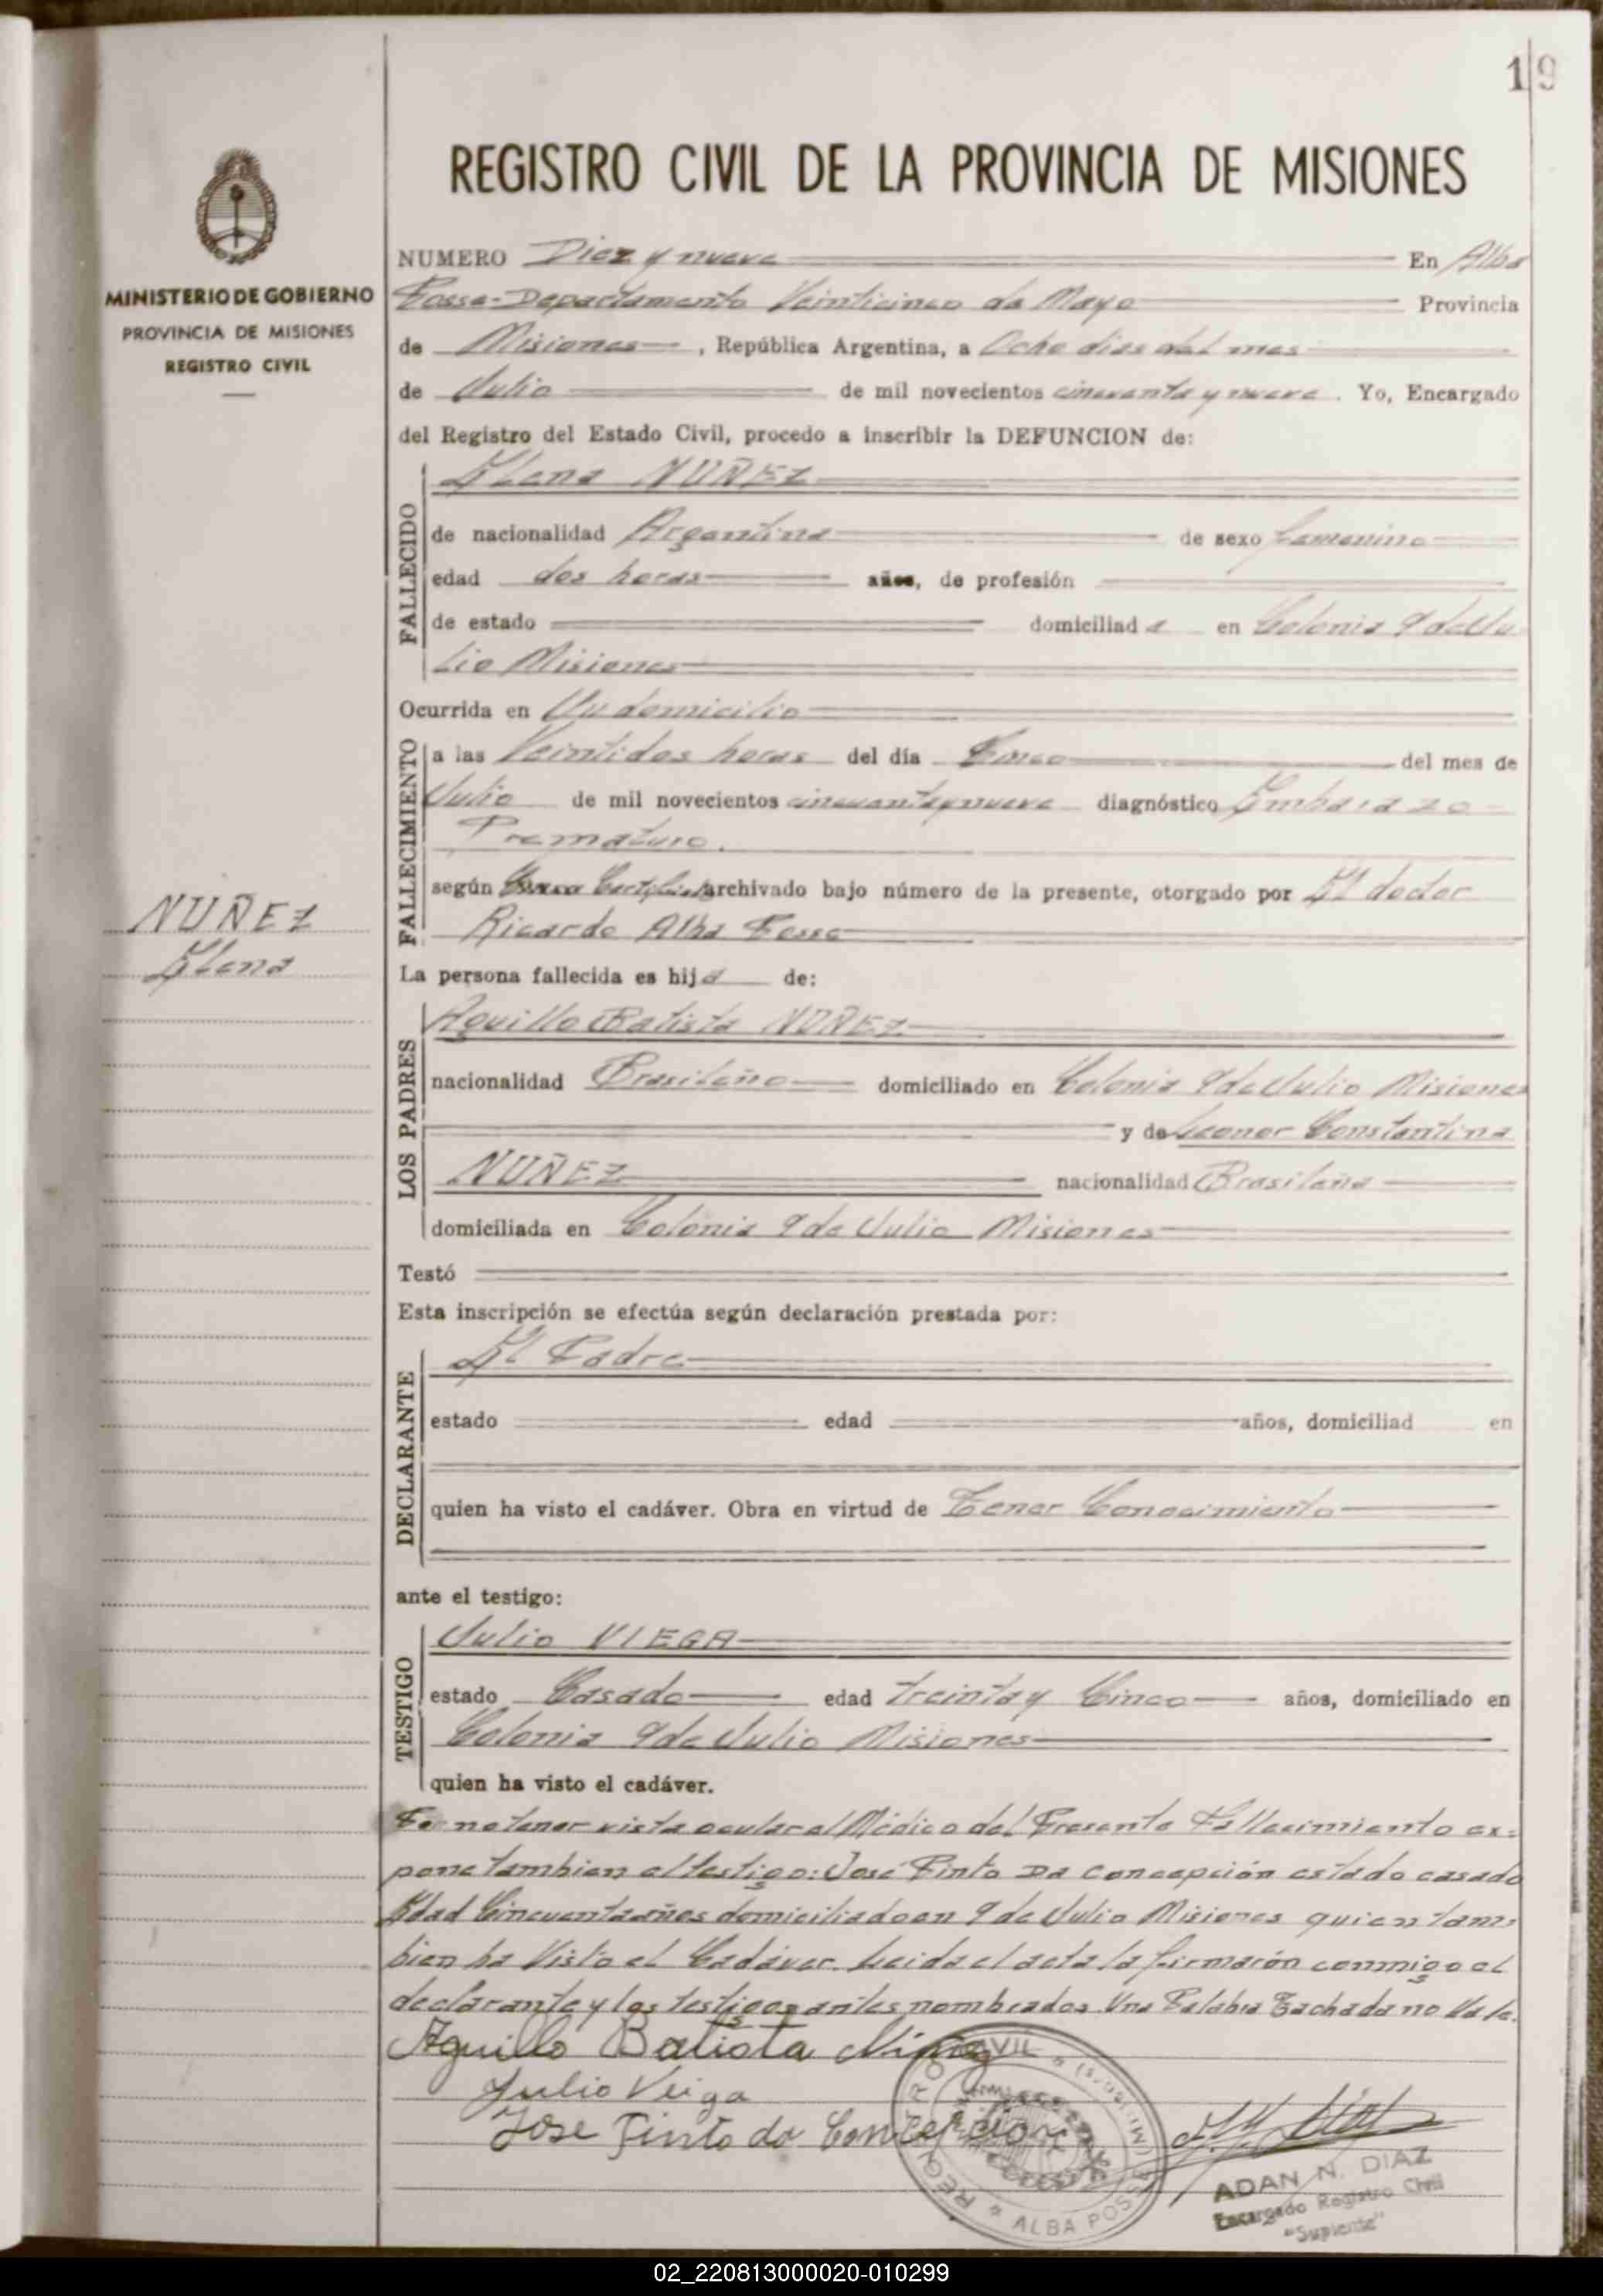 19
REGISTRO CIVIL DE LA PROVINCIA DE MISIONES
MINISTERIO DE GOBIERNO
PROVINCIA DE MISIONES
REGISTRO CIVIL
NUÑEZ
Elena
NUMERO Diez y nueve En Alba
Posse-Departamento Veinticinco de Mayo Provincia
de Misiones, República Argentina, a Ocho dias del mes
de Julio de mil novecientos cincuenta y nueve. Yo, Encargado
del Registro del Estado Civil, procedo a inscribir la DEFUNCION de:
FALLECIDO
Elena NUÑEZ
de nacionalidad Argentina de sexo femenino
edad dos horas años, de profesión
de estado domiciliad a en Colonia 9 de Ju
lio Misiones
Ocurrida en Su domicilio
FALLECIMIENTO
a las Veintidos horas del día Cinco del mes de
Julio de mil novecientos cincuenta y nueve diagnóstico Embarazo
Prematuro.
según Certificado archivado bajo número de la presente, otorgado por El doctor
Ricardo Alba Posse
La persona fallecida es hija de:
LOS PADRES
Aquillo Batista NUÑEZ
nacionalidad Brasileño domiciliado en Colonia 9 de Julio Misiones
y de Leonor Constantina
NUÑEZ nacionalidad Brasileña
domiciliada en Colonia 9 de Julio Misiones
Testó
Esta inscripción se efectúa según declaración prestada por:
DECLARANTE
El Padre
estado edad años, domiciliad en
quien ha visto el cadáver. Obra en virtud de Tener Conocimiento
ante el testigo:
TESTIGO
Julio VIEGA
estado Casado edad treinta y Cinco años, domiciliado en
Colonia 9 de Julio Misiones
quien ha visto el cadáver.
Po no tener vista ocular al Médico del Presente Fallecimiento ex=
pone tambien el testigo: José Pinto Da Concepción estado casado
Edad Cincuenta años domiciliado en 9 de Julio Misiones quien tam=
bien ha Visto el Cadáver. Leida el acta la firmarón conmigo el
declarante y los testigos antes nombrados Una Palabra Tachada no Vale.
Aquillo Batista
Julio Veiga
Jose Pinto da Concepcion
REGISTRO CIVIL * (Misiones)
* ALBA POSSE
ADAN N. DIAZ
Encargado Registro Civil
"Suplente"
02_220813000020-010299